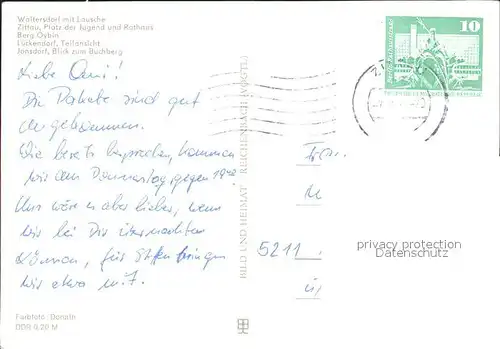 Waltersdorf mit Lausche
Zittau, Platz der Jugend und Rathaus
Berg Oybin
Lückendorf, Teilansicht
Jonsdorf, Blick zum Buchberg
Liebe Omi!
Die Pakete sind gut
angekommen.
Wie bereits besprochen, kommen
wir am Donnerstag, gegen 19
Uns wäre es aber lieber, wenn
wir bei Dir übernachten
können, für
wir etwa m. 7.
BILD UND HEIMAT REICHENBACH (VOGTL)
10
5211
privacy protection
Datenschutz
Farbfoto: Donath
DDR 0,20 M